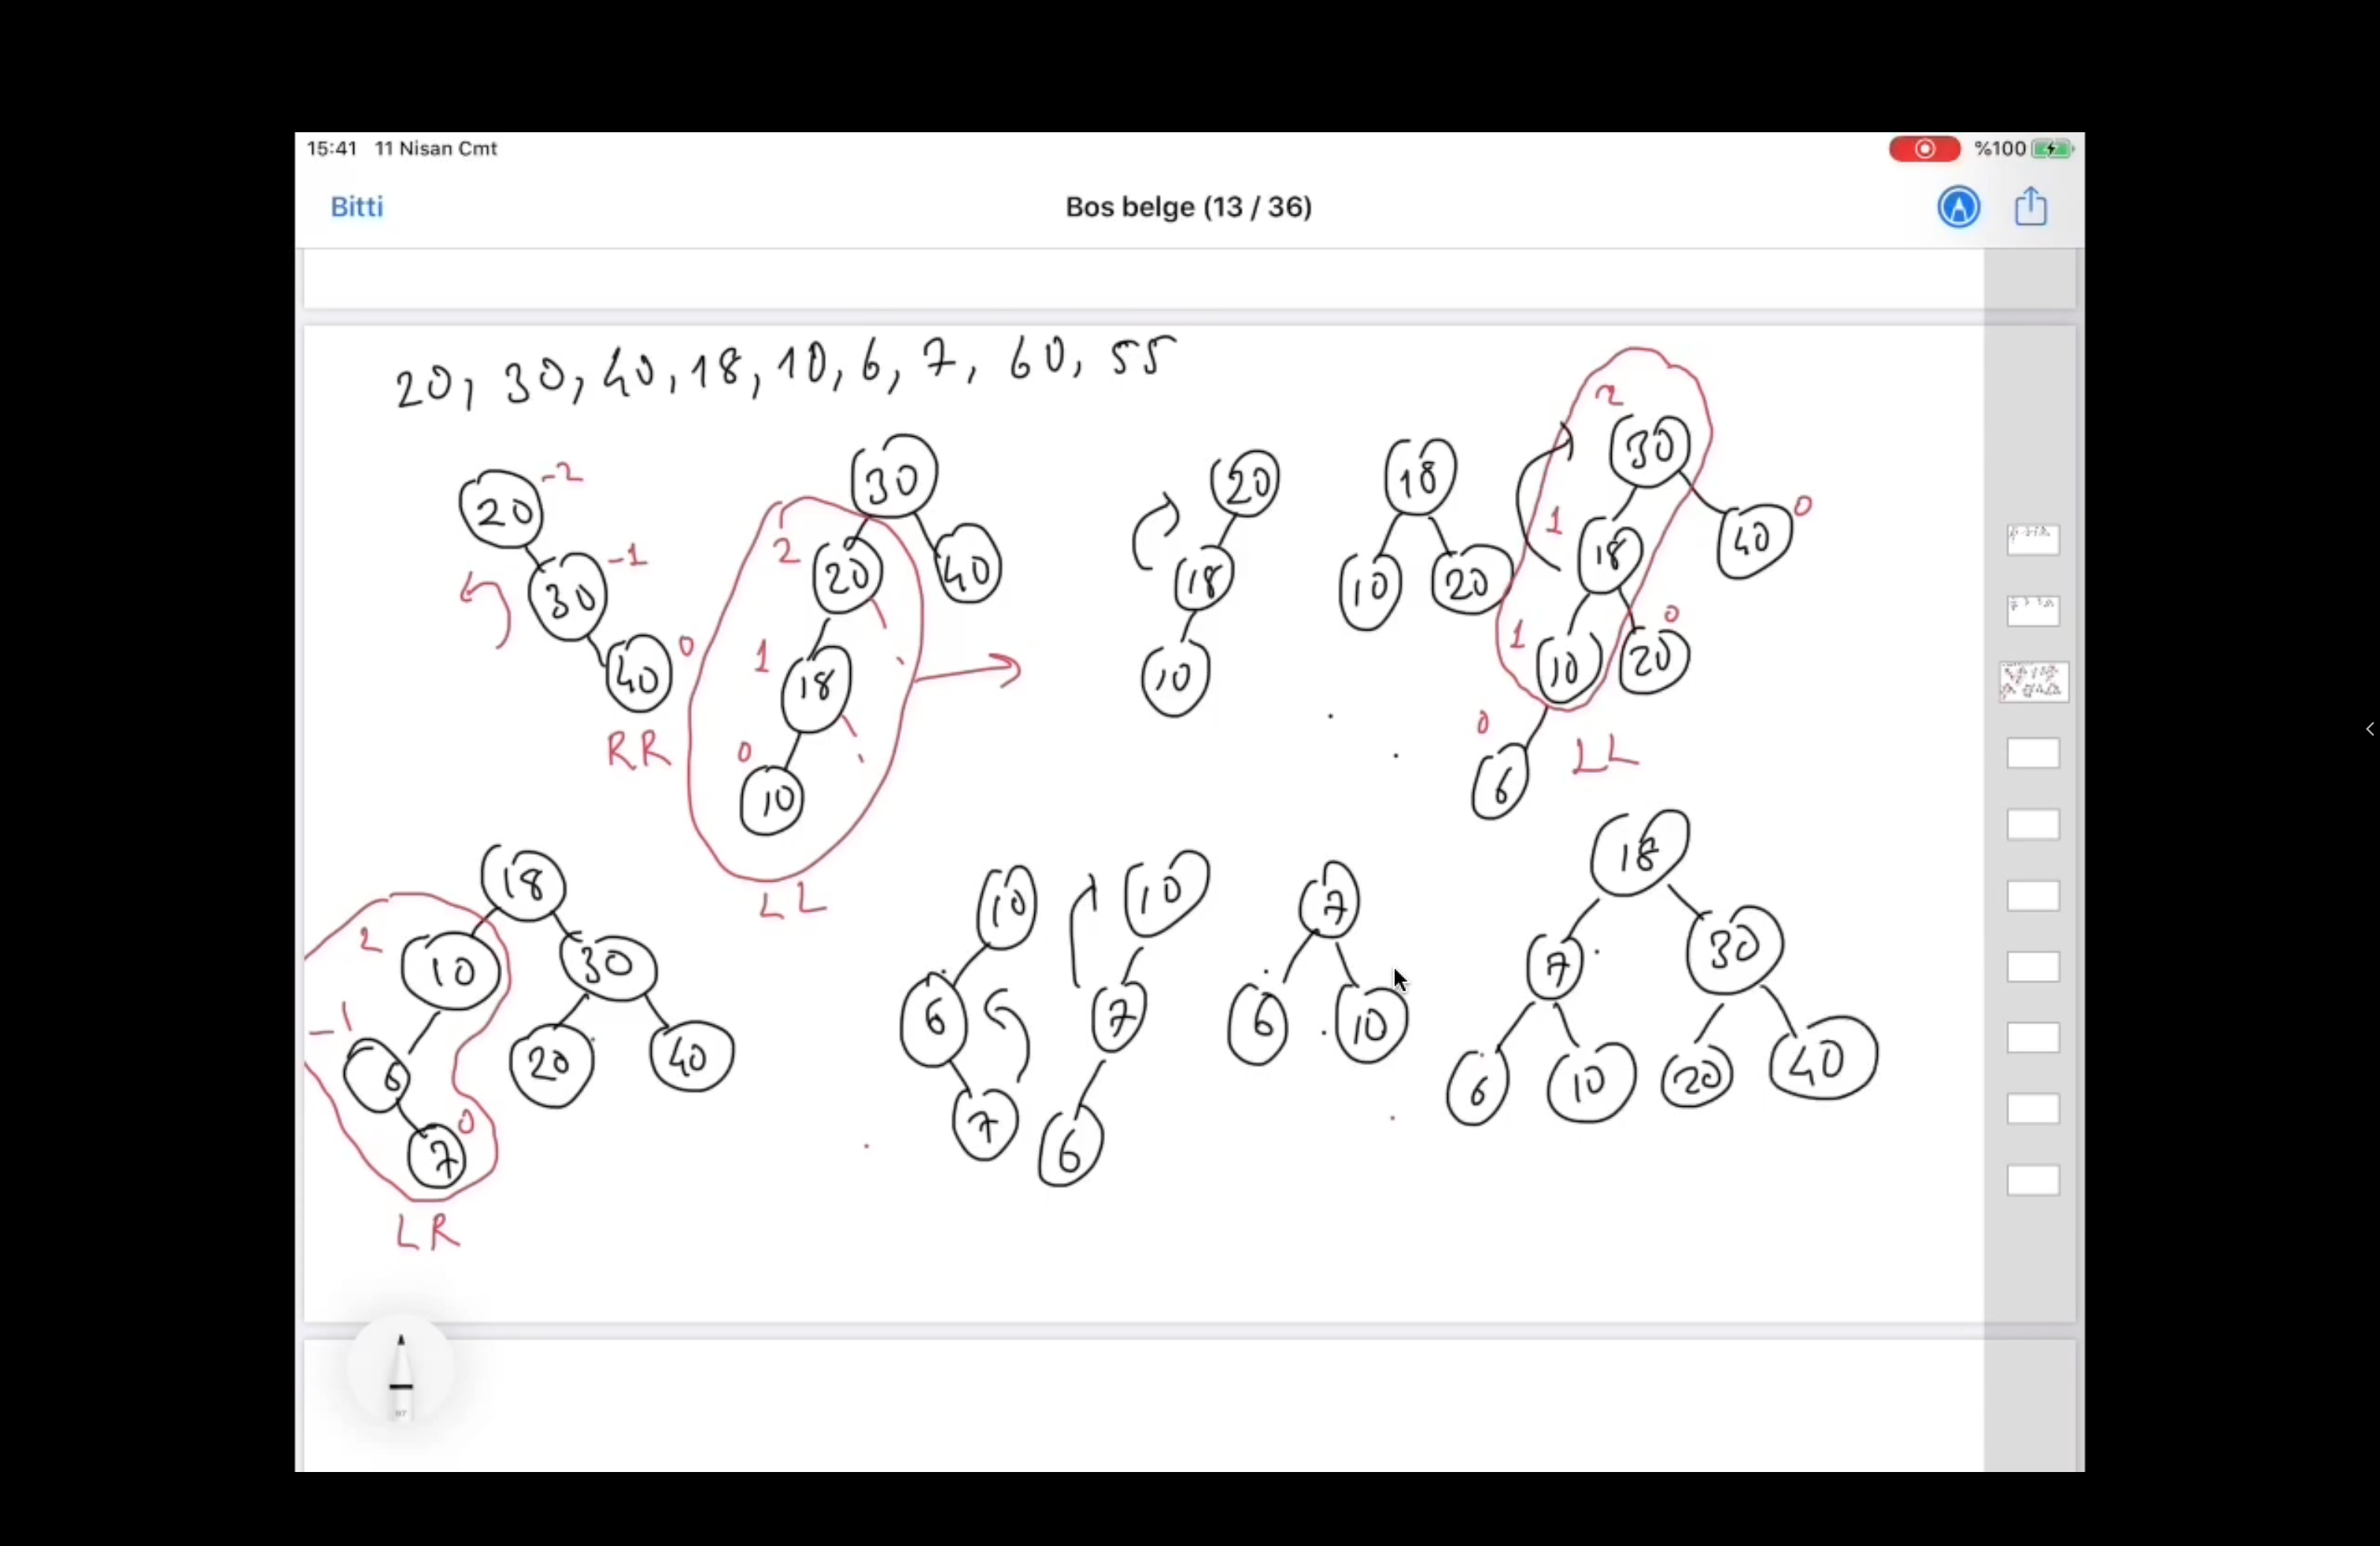 15:41 11 Nisan Cmt %100
Bitti Bos belge (13 / 36)
20, 30, 40, 18, 10, 6, 7, 60, 55
20 -2
30 -1
40 0
RR
30
2 20 40
1 18
0 10
LL
20
18
10
18
10 20
2 30
1 18 40 0
1 10 20 0
0 6
LL
18
2 10 30
-1 6 20 40
7 0
LR
10
6
7
10
7
6
7
6 10
18
7 30
6 10 20 40